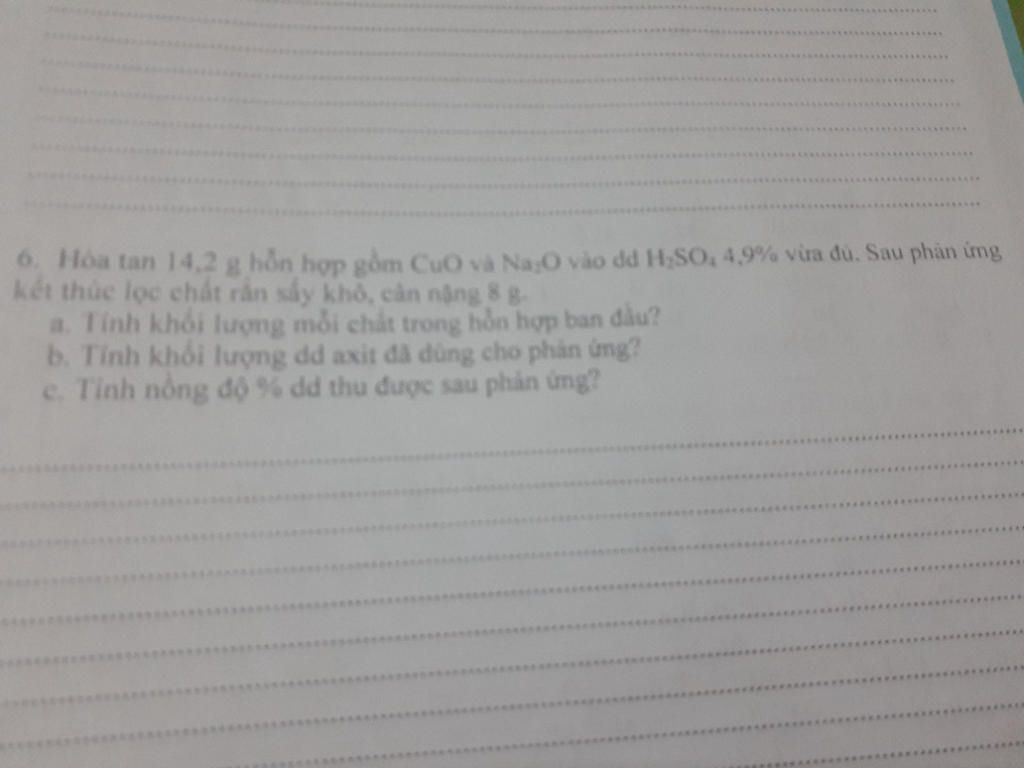 6. Hòa tan 14,2 g hỗn hợp gồm CuO và Na₂O vào dd H₂SO₄ 4,9% vừa đủ. Sau phản ứng
kết thúc lọc chất rắn sấy khô, cân nặng 8 g.
a. Tính khối lượng mỗi chất trong hỗn hợp ban đầu?
b. Tính khối lượng dd axit đã dùng cho phản ứng?
c. Tính nồng độ % dd thu được sau phản ứng?